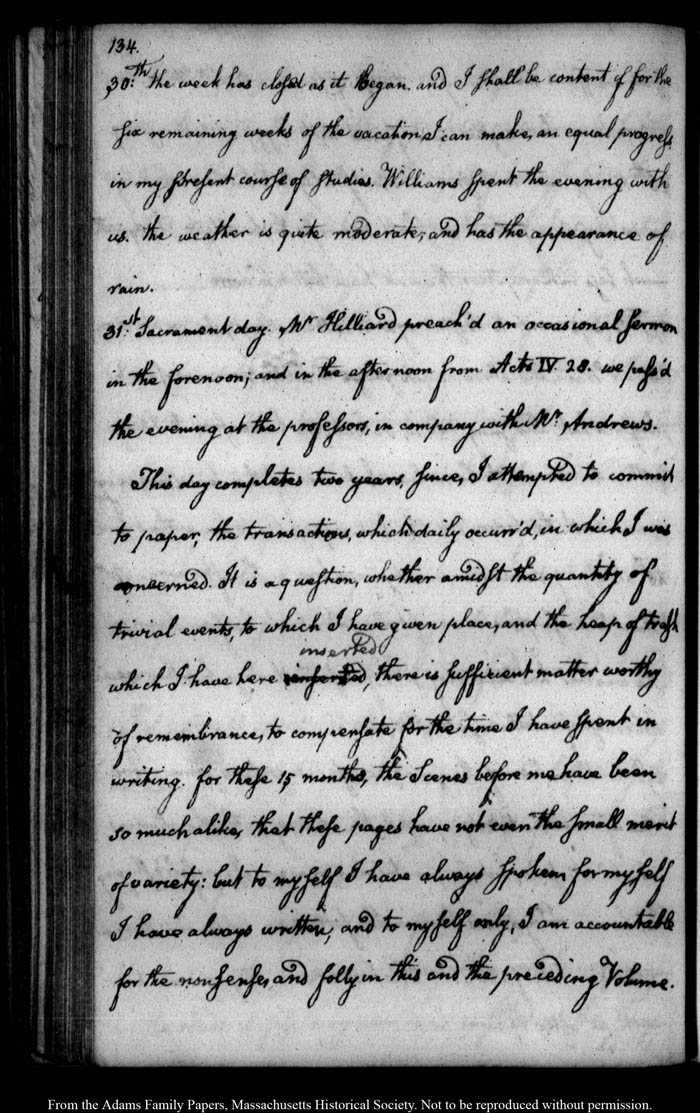 134.
30.th the week has closed as it began. and I shall be content if for the
six remaining weeks of the vacation, I can make, an equal progress
in my present course of studies. Williams spent the evening with
us. the weather is quite moderate, and has the appearance of
rain.
31.st Sacrament day. Mr Hilliard preach'd an occasional sermon
in the forenoon; and in the afternoon from Acts IV. 28. we pass'd
the evening at the professors, in company with Mr. Andrews.
This day completes two years, since, I attempted to commit
to paper, the transactions, which daily occurr'd, in which I was
concerned. It is a question, whether amidst the quantity of
trivial events, to which I have given place, and the heap of trash
inserted
which I have here inserted, there is sufficient matter worthy
of remembrance, to compensate for the time I have spent in
writing. for these 15 months, the Scenes before me have been
so much alike, that these pages have not even the small merit
of variety: but to myself I have always spoken for myself
I have always written, and to myself only, I am accountable
for the nonsense, and folly in this and the preceding Volume.
From the Adams Family Papers, Massachusetts Historical Society. Not to be reproduced without permission.